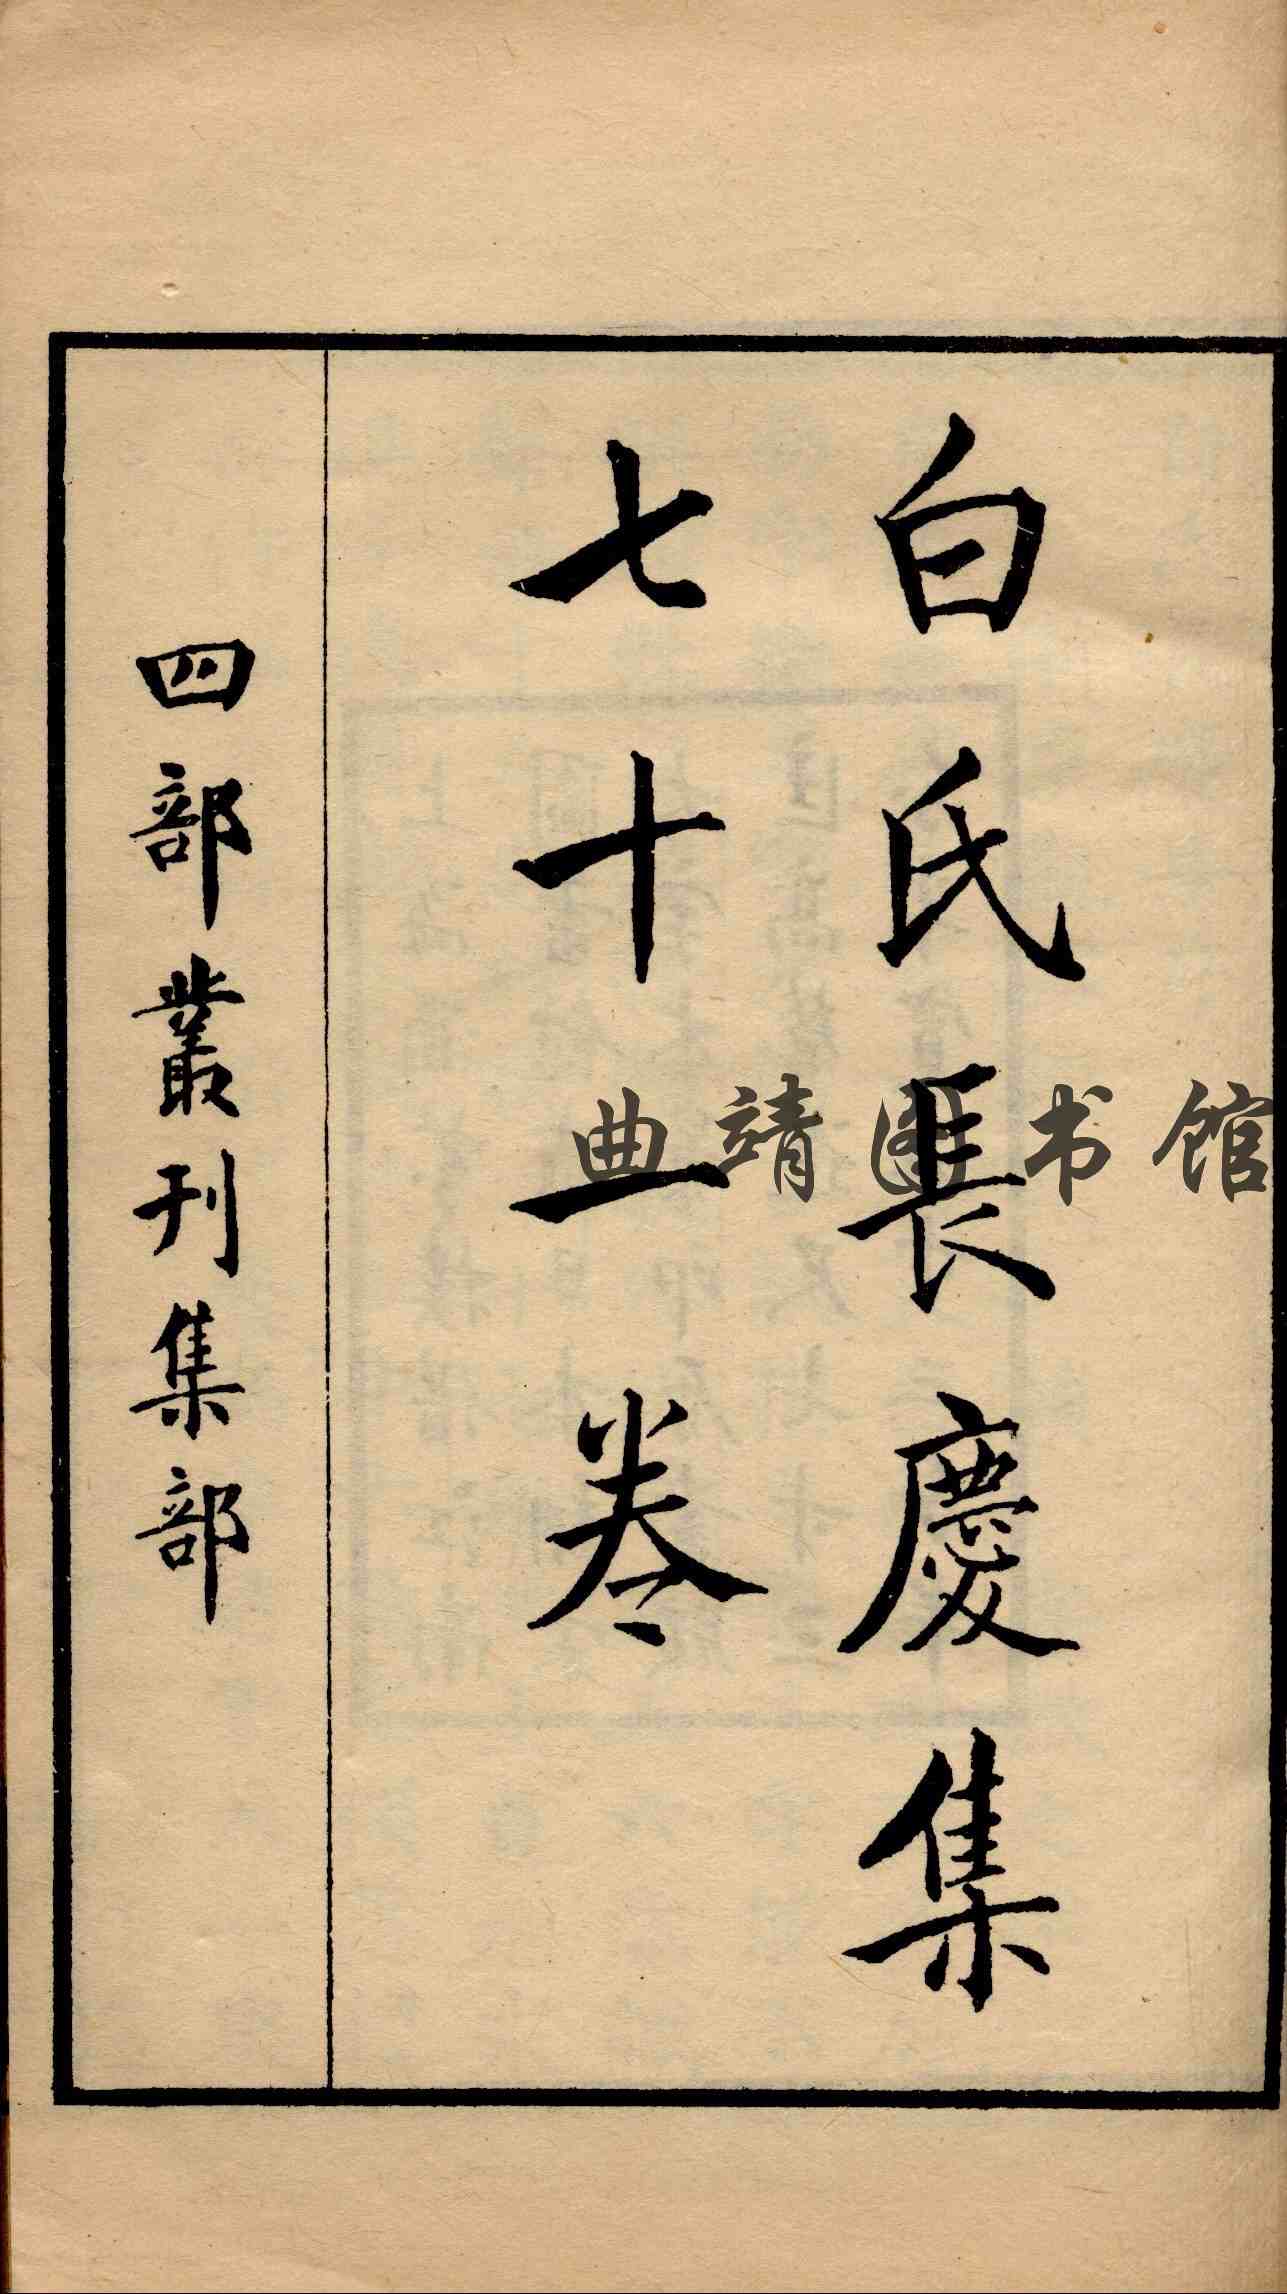 白氏長慶集
七十一卷
四部叢刊集部
曲靖图书馆